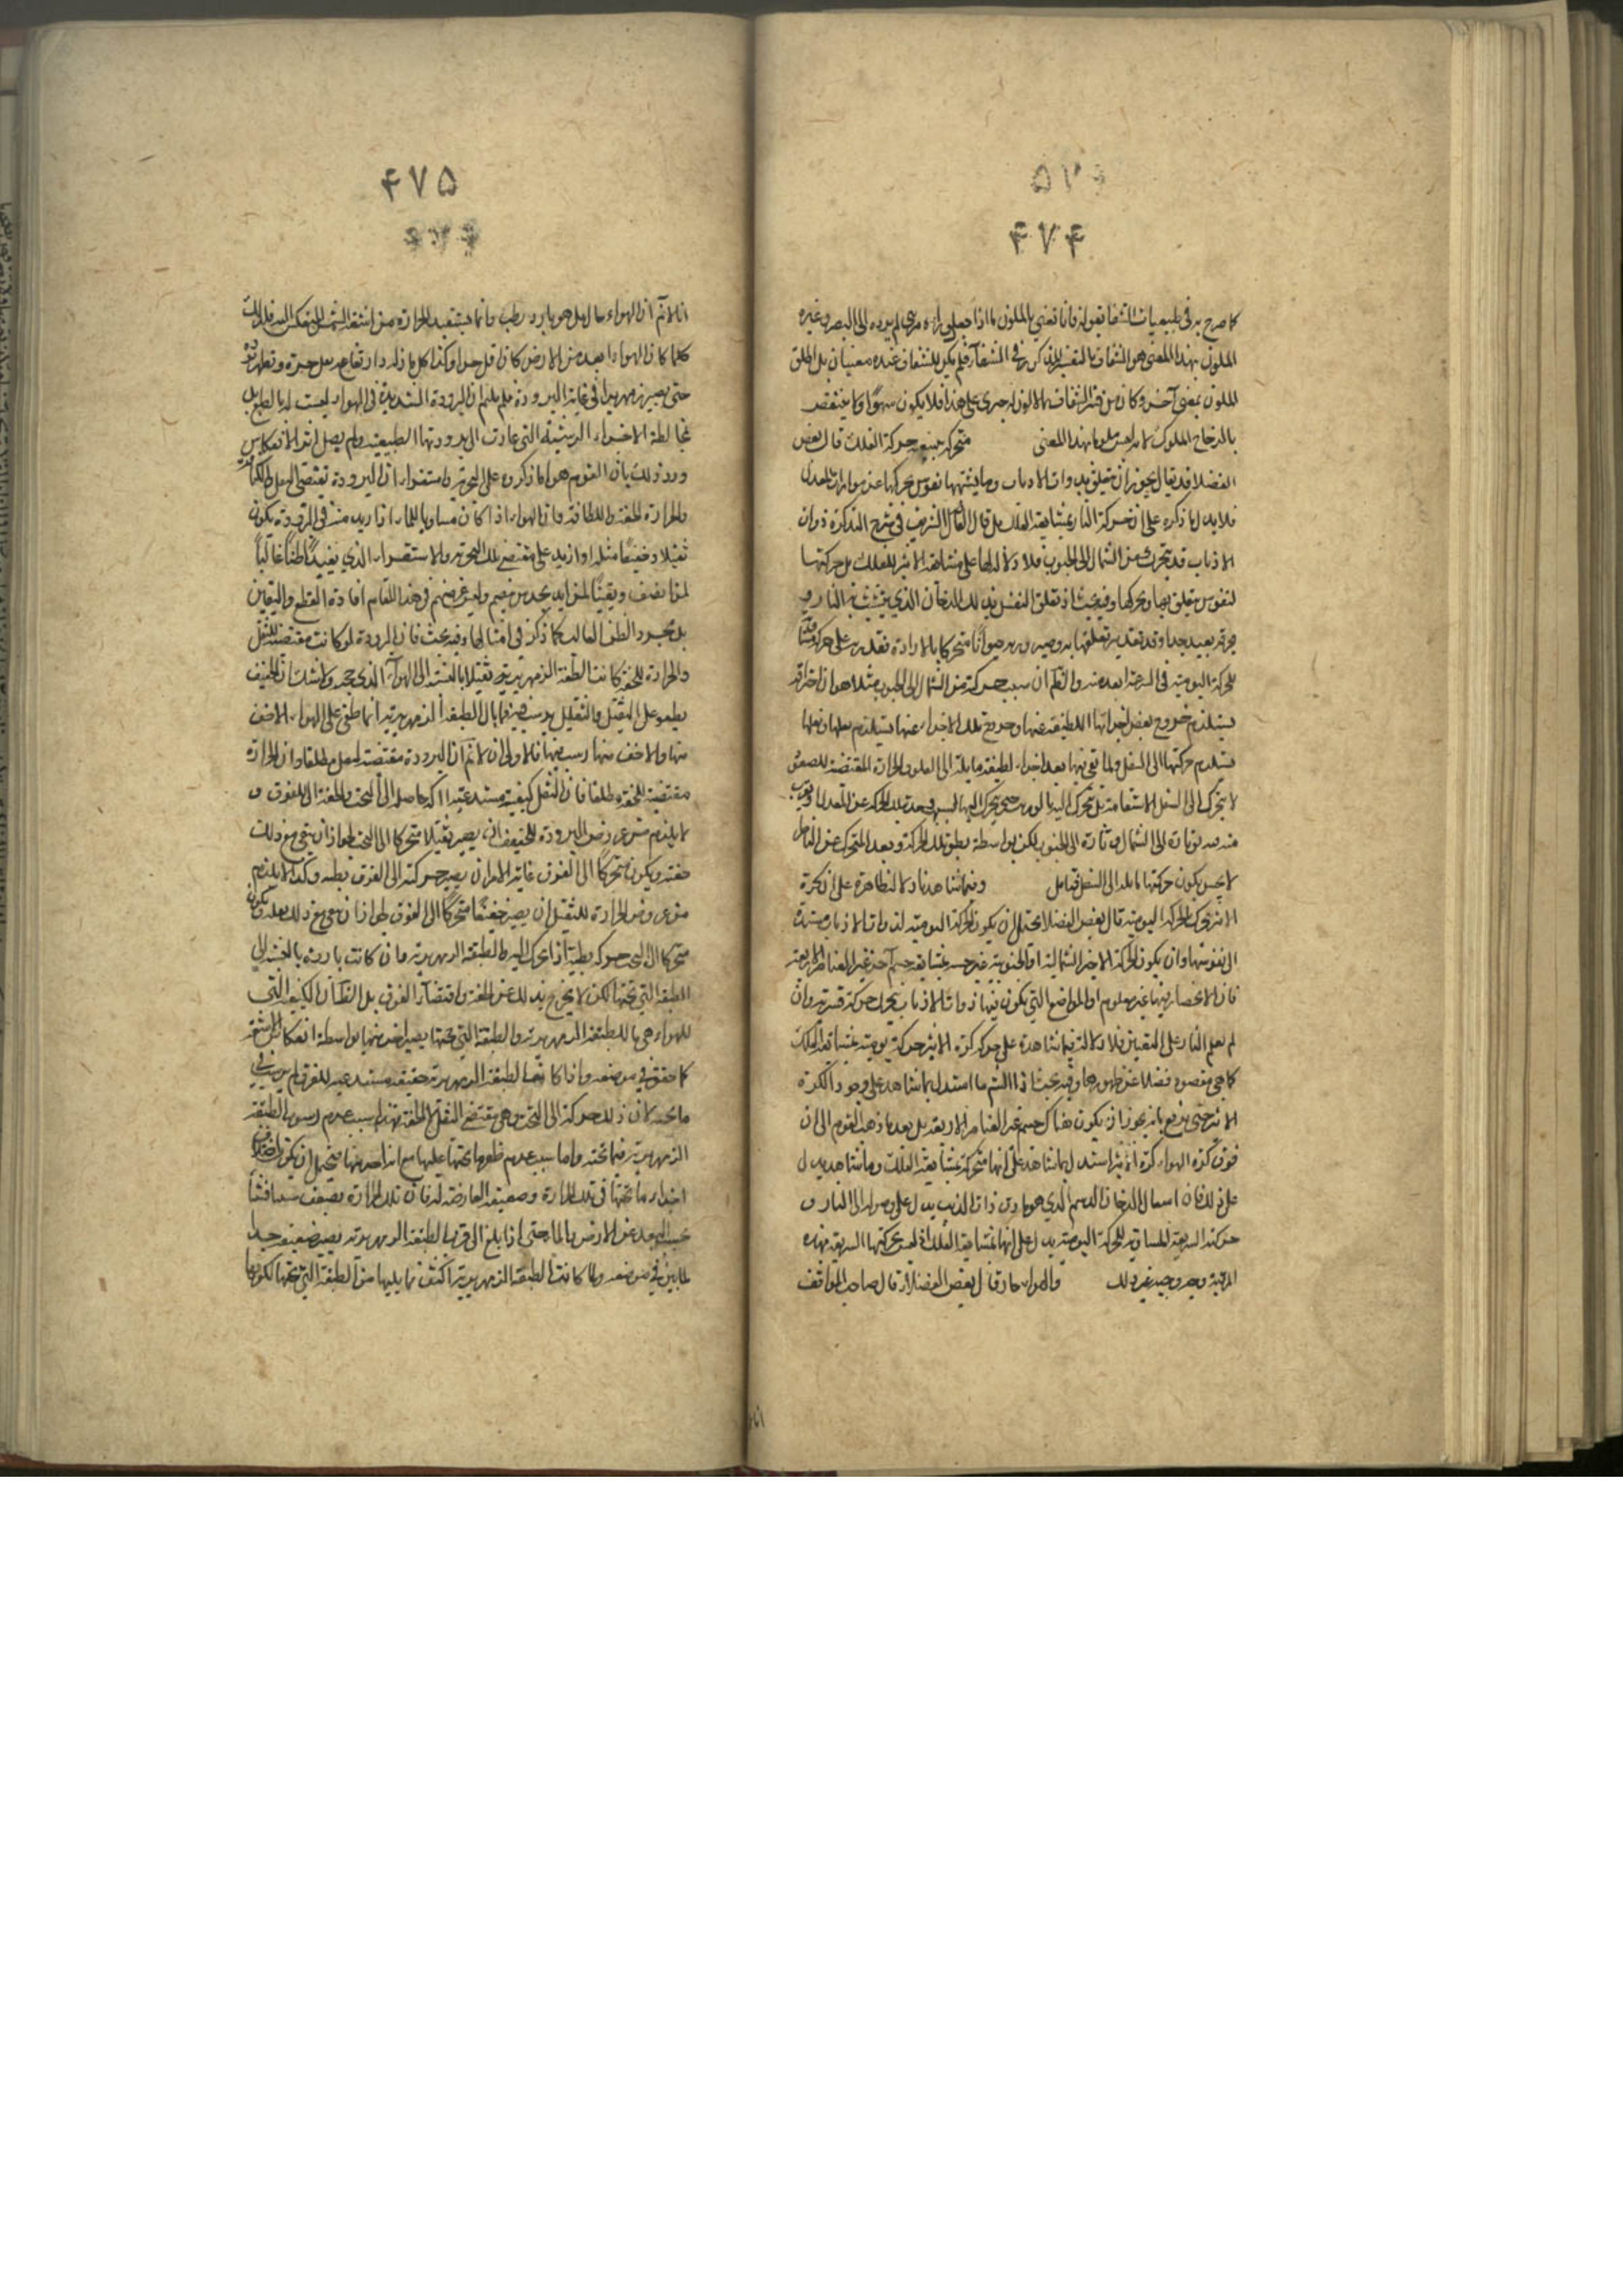 ۴۷۴
كما صرح به في طبيعيات الشفا بقوله فانا نعني بالملون ما اذا جعل وراء مرئي لم يوده الى البصر وغيره
الملون بهذا المعنى هو الشفاف بالتفسير المذكور في الشفا فلم يكن للشفاف عنده معنيان بل اطلق
الملون بمعنى آخر وكان من فسر الشفاف بما لا لون له جرى على هذا فلا يكون سهوا ولا ينتقض
بالزجاج الملون لانه ليس ملونا بهذا المعنى متحركة بتبعية حركة الفلك قال بعض
الفضلا قد يقال يجوز ان يتعلق بذوات الاذناب وما يشبهها نفوس تحركها عن موازات المعدل
فلا يدل ما ذكره على ان حركة النار بمشايعة الفلك بل قال الفاضل الشريف في شرح التذكرة ذوات
الاذناب قد تتحرك من الشمال الى الجنوب فلا دلالة لها على مشايعة الاثير للفلك بل حركتها
لنفوس يتعلق بها وتحركها وفيه بحث اذ تعلق النفس بذلك الدخان الذي يتشبث به النار و
للحركة اليومية في السرعة ابعد منه والظاهر ان سبب حركته من الشمال الى الجنوب مثلا هو ان احتراقه
يستلزم خروج بعض اجزائها اللطيفة عنها وخروج تلك الاجزاء عنها يستلزم
يستلزم حركتها الى السفل ولما بقي فيها بعد اجزاء لطيفة مايلة الى العلو والحرارة المقتضية للصعود
لا يتحرك الى السفل الاستقامة بل
منه تارة الى الشمال وتارة الى الجنوب لكن بواسطة بطؤ تلك الحركة وبعد المتحرك عن الناظر
لا يحس بكون حركتها مايلة الى السفل فتامل وفيما شاهدنا دلالة ظاهرة على ان كرة
الاثير تتحرك بالحركة اليومية قال بعض الفضلا يحتمل ان يكون الحركة اليومية لذوات الاذناب مستندة
الى نفوسها وان يكون الحركة الاخرى الشمالية او الجنوبية بمشايعة جسم آخر غير العناصر الاربعة
فان الانحصار فيها غير معلوم او المواضع التي يكون فيها ذوات الاذناب يتحرك حركة قسرية وان
لم نعلم القاسر على التعيين فلا دلالة فيما شاهده على حركة كرة الاثير حركة يومية بمشايعة الفلك
كما هي مقصوده فضلا عن ظهورها وفيه بحث اذ المستدل بما شاهد على وجود الكرة
الاثير حتى يدفع بانه يجوز ان يكون هناك جسم غير العناصر الاربعة بل بعد ما ذهب القوم الى ان
فوق كرة الهواء كرة اثير استدل بما شاهد على انها متحركة بمشايعة الفلك وما شاهد يدل
على ذلك فان اشتعال الدخان الدسم الذي هو مادة ذوات الذنب يدل على وصوله الى النار و
حركته السريعة المساوية للحركة اليومية يدل على انها بمشايعة الفلك اذ ليس تحركها السريعة بهذه
المرتبة وجه وجيه غير ذلك والهواء حار قال بعض الفضلا قال صاحب المواقف
۴۷۵
انا لا نم ان الهواء حار بل هو بارد رطب وانما يستفيد الحرارة من اشعة الشمس المنعكسة اليه فلذلك
كلما كان الهواء ابعد من الارض كان اقل حرا وكذا كل ما زاد ارتفاعه قل حره وتظهر برده
حتى يصير زمهريرا في غاية البرودة فلم يلزم ان البرودة الشديدة في الهواء ليست له بالطبع بل
لمخالطة الاجزاء الرشية التي عادت الى برودتها الطبيعية ولم يصل اثر الانعكاس
ورد ذلك بان القوم هو ما ذكروه على التجربة واستقراء ان البرودة تقتضي الثقل والكثافة
والحرارة الخفة واللطافة وان الهواء اذا كان مساويا للماء او ازيد منه في البرودة يكون
ثقيلا وخفيفا مثله او ازيد على مقتضى تلك التجربة والاستقراء الذي يفيد ظنا غالبا
لمن انصف ويقينا لمن ايد بحدس قويم وليس غرضهم في هذا المقام افادة القطع واليقين
بل مجرد الظن الغالب كما ذكر في امثالها وفيه بحث فان البرودة لو كانت مقتضية للثقل
والحرارة للخفة كانت الطبقة الزمهريرية ثقيلا بالنسبة الى الهواء الذي تحته ولا شك ان الخفيف
يطفو على الثقيل والثقيل يرسب فيه فما بال الطبقة الزمهريرية انما طفت على الهواء الاخف
منها والاخف منها رسب فيها فالاولى ان لا نم ان البرودة مقتضية للثقل مطلقا وان الحرارة
مقتضية للخفة مطلقا فان الثقل كيفية مستدعية لحركة حاملها الى التحت والخفة الى الفوق و
لا يلزم من عروض البرودة للخفيف ان يصير ثقيلا متحركا الى التحت لجواز ان يبقى مع ذلك
خفته ويكون متحركا الى الفوق غاية الامر ان يصير حركته الى الفوق بطيئة وكذا لا يلزم
من عروض الحرارة للثقيل ان يصير خفيفا متحركا الى الفوق لجواز ان يبقى مع ذلك ثقله ويكون
متحركا الى التحت حركة بطيئة اذا تحرك اليه والطبقة الزمهريرية وان كانت باردة بالنسبة الى
الطبقة التي تحتها لكن لا يخرج بذلك عن الخفة واقتضاء الفوق بل الظاهر ان الكيفية التي
للهواء هي ما للطبقة الزمهريرية والطبقة التي تحتها يصير اسخن منها بواسطة انعكاس الاشعة
كما حقق في موضعه واذا كانت الطبقة الزمهريرية خفيفة مستدعية للفوق لم يرسب في
ما تحته لان ذلك حركة الى التحت وهي مقتضى الثقل لا الخفة فهذا سبب عدم رسوب الطبقة
الزمهريرية فيما تحته واما سبب عدم طفو ما تحتها عليها مع انه احر منها فيحتمل ان يكون اختلاف
اجزاء ما تحتها في تلك الحرارة وضعيفة العارضة له فان تلك الحرارة يضعف شيئا فشيئا
بحسب البعد عن الارض والماء حتى اذا بلغ الى قرب الطبقة الزمهريرية يصير ضعيفة جدا
لما بين في موضعه ولما كانت الطبقة الزمهريرية اكثف مما يليها من الطبقة التي تحتها لكونها